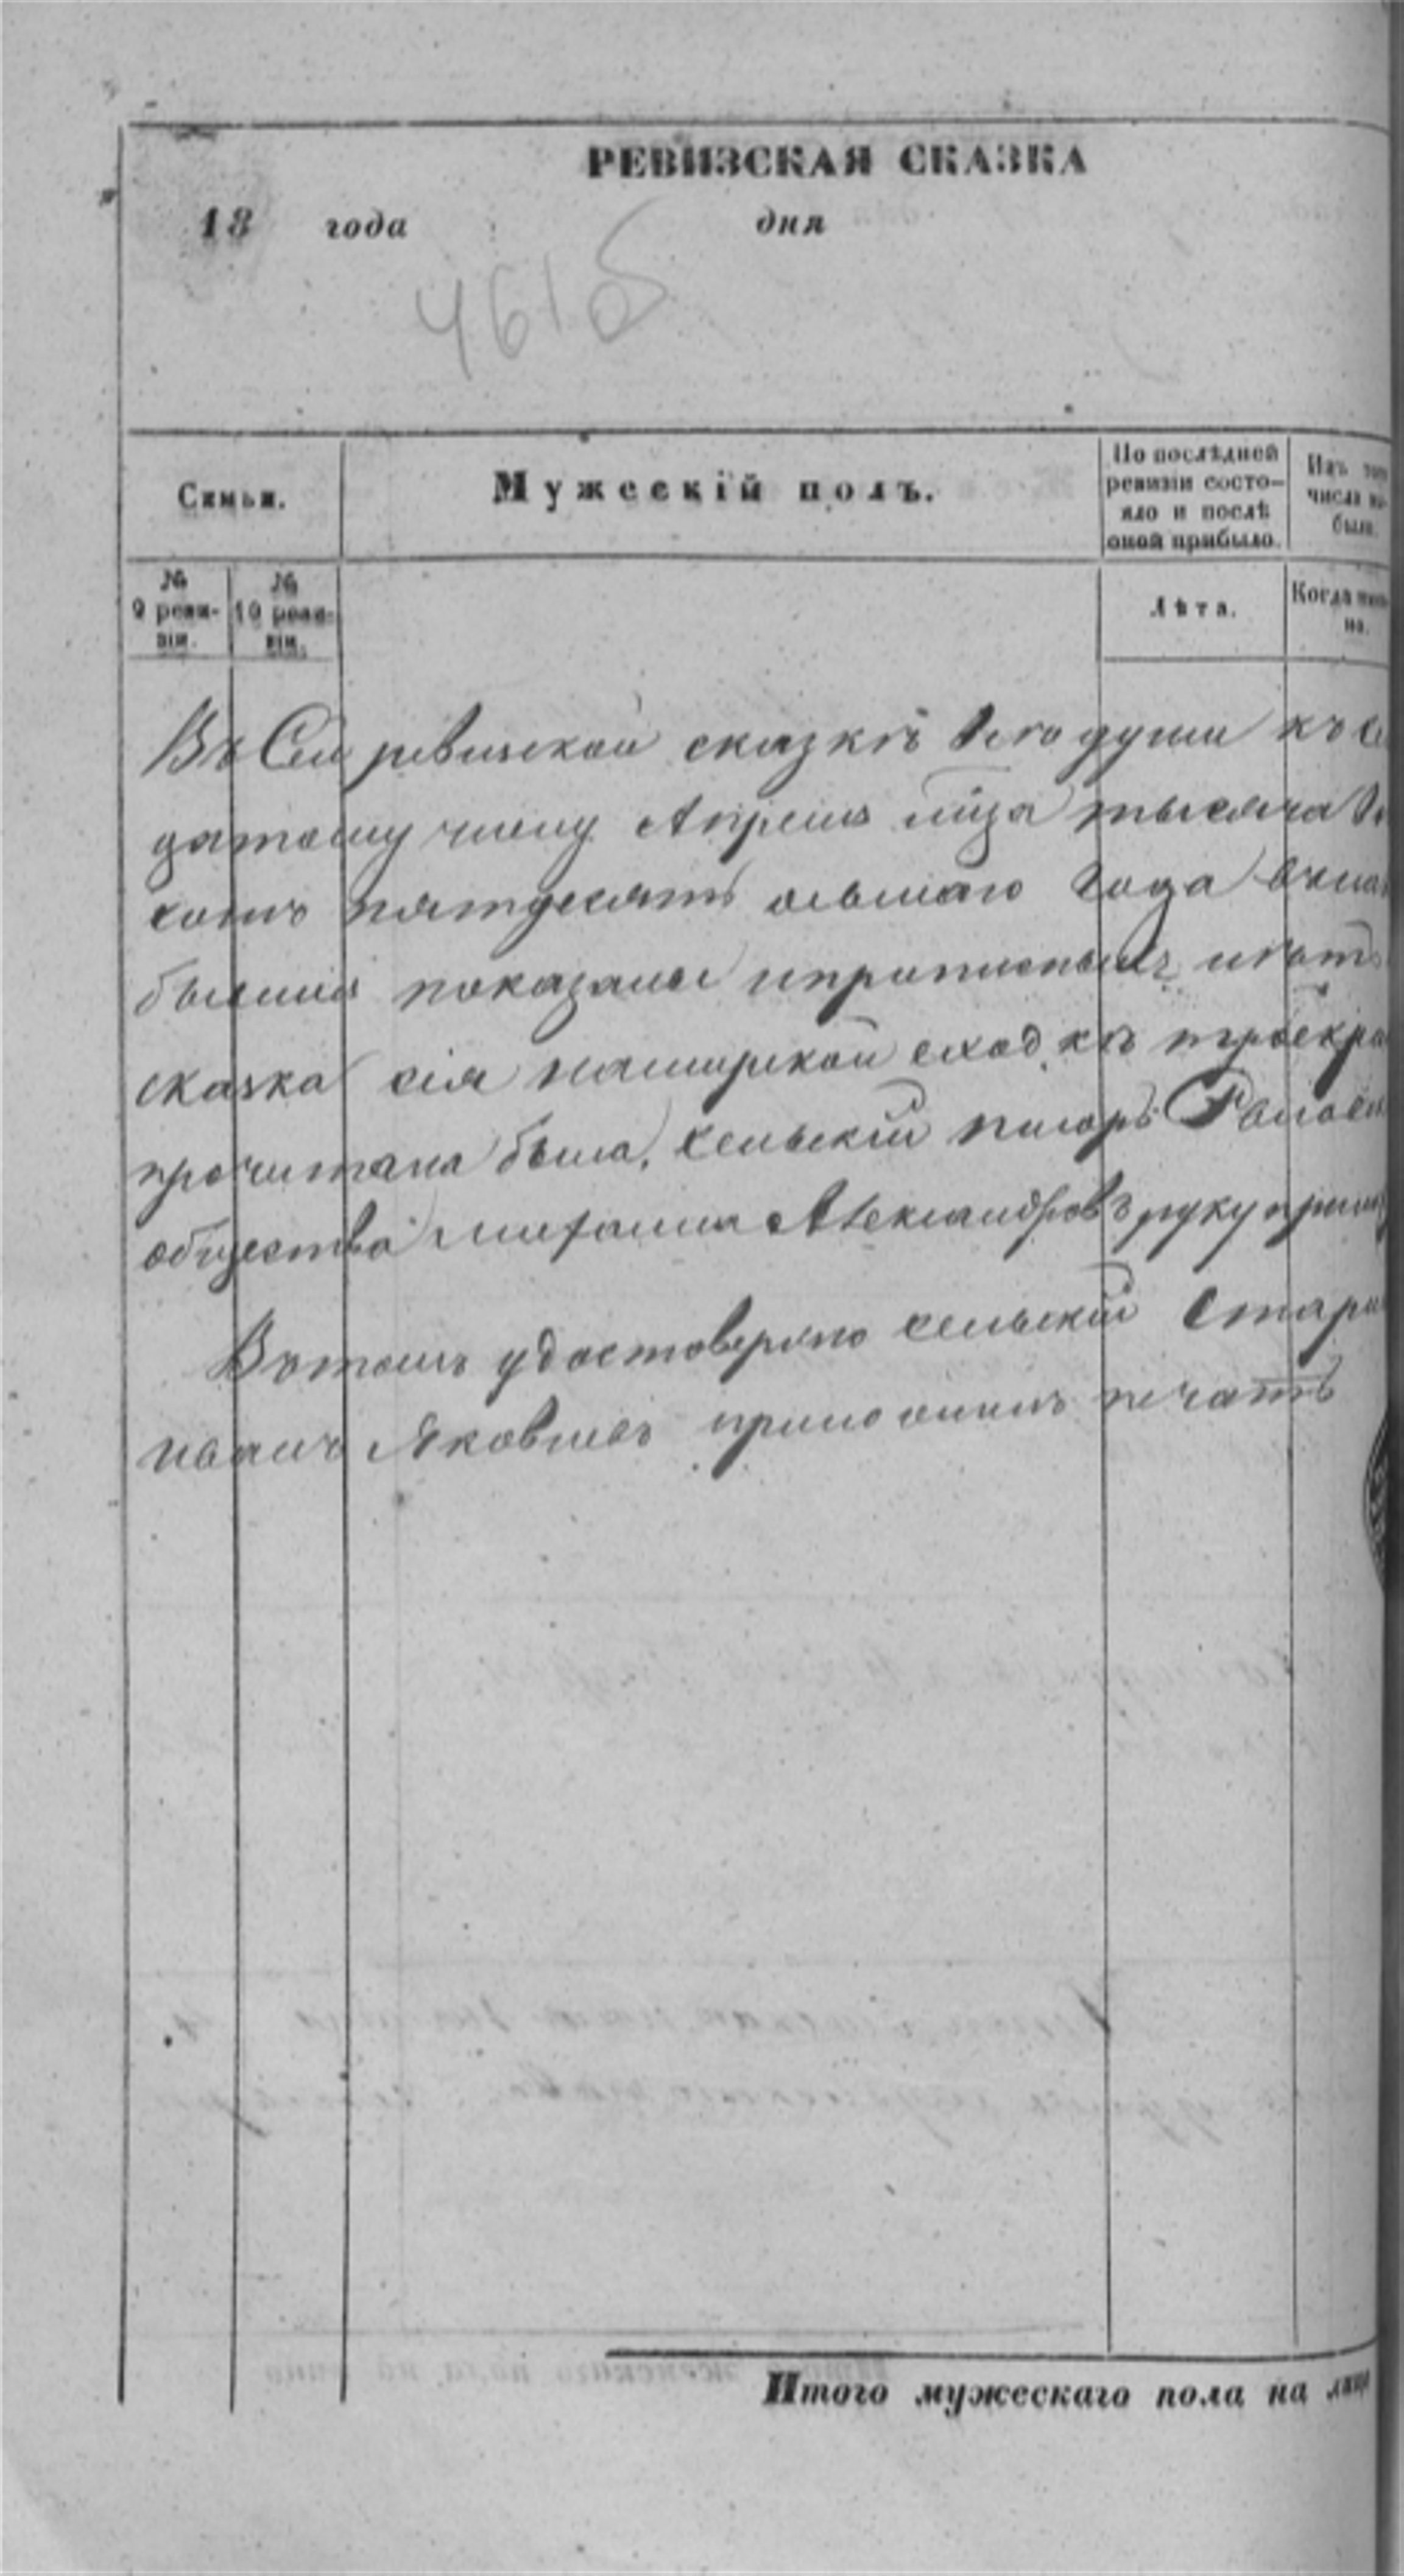 РЕВИЗСКАЯ СКАЗКА
18 года дня
461б
Семьи.
Мужескій полъ.
По послѣдней ревизіи состо-
яло и послѣ
оной прибыло.
Изъ того
числа вы-
было.
№
9 реви-
зіи.
№
10 реви-
зіи.
Лѣта.
Когда имен-
но.
Въ Сей ревизской сказкѣ все души къ
датому числу Апреля мца тысяча
сотъ пятдесятъ осьмаго года
бывшiя показаны ипрописныхъ
сказка сiя намирской сходкѣ троекра
прочитана была, Сельскiй писарь
общества Александровъ руку прило
Вътомъ удостоверяю сельскiй Старо
иванъ Яковлевъ приложилъ печать
Итого мужескаго пола на лицо